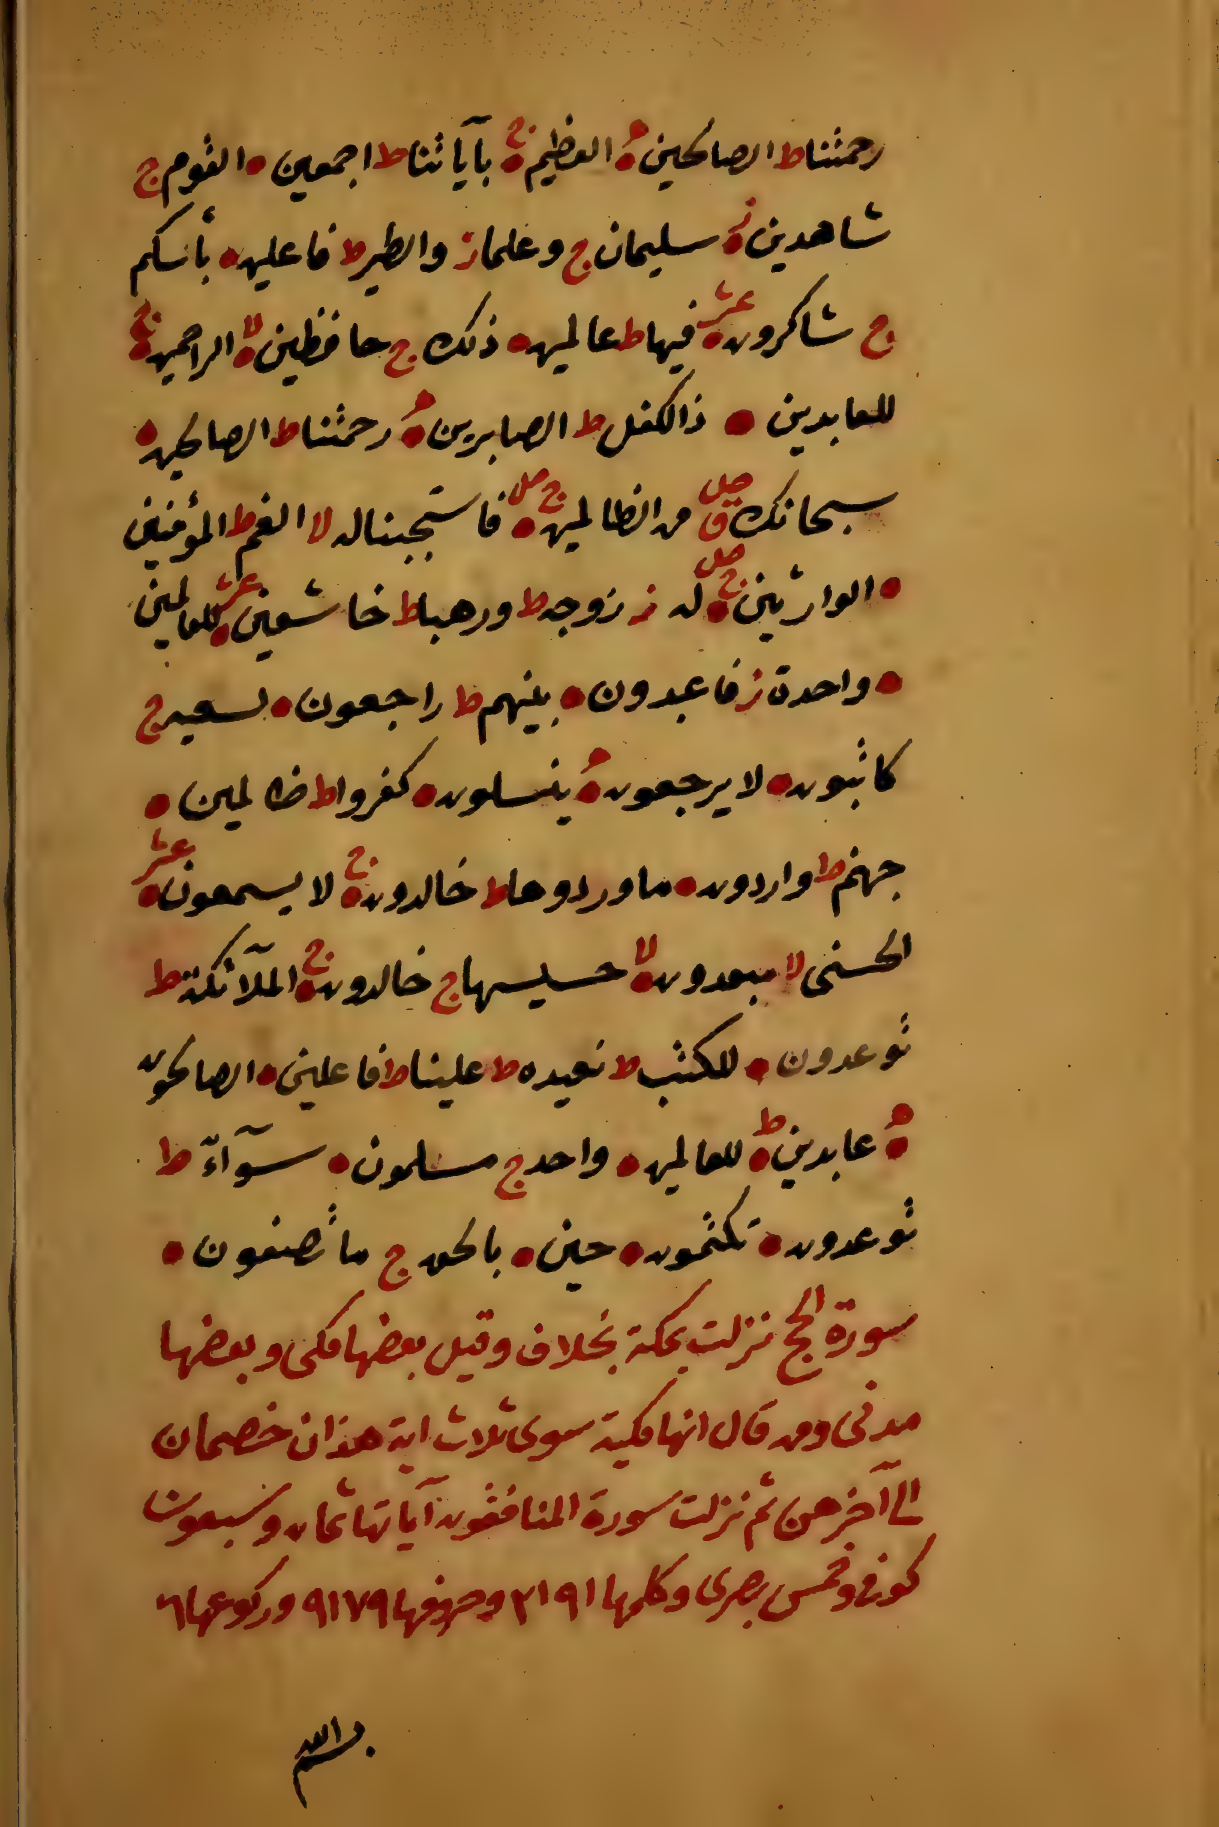 رحمتنا ط الصالحين ه العظيم ج بآياتنا ط اجمعين القوم ج
شاهدين ز سليمان ج وعلما ز والطير ط فاعلين بأسكم
ج شاكرون عشر فيها ط عالمين ذلك ج حافظين لا الراحمين ج
للعابدين ذا الكفل ط الصابرين ه رحمتنا ط الصالحين
سبحانك ق صل من الظالمين ج صل فاستجبنا له لا الغم ط المؤمنين
الوارثين ج صل له ز زوجه ط ورهبا ط خاشعين عشر للعالمين
واحدة ز فاعبدون بينهم ط راجعون لسعيه ج
كاتبون لا يرجعون ه ينسلون كفروا ط ظالمين
جهنم ط واردون ما وردوها ط خالدون ج لا يسمعون عشر
الحسنى لا مبعدون لا حسيسها ج خالدون ج الملآئكة ط
توعدون للكتب ط نعيده ط علينا ط فاعلين الصالحون
ه عابدين ط للعالمين واحد ج مسلمون سوآء ط
توعدون تكتمون حين بالحق ج ما تصفون
سورة الحج نزلت بمكة بخلاف وقيل بعضها مكى وبعضها
مدنى ومن قال انها مكية سوى ثلاث اية هذان خصمان
الى آخرهن ثم نزلت سورة المنافقون آياتها ثمان وسبعون
كوفى وخمس بصرى وكلمها ٢١٩١ وحروفها ٩١٧٩ وركوعها ٦
بسم الله